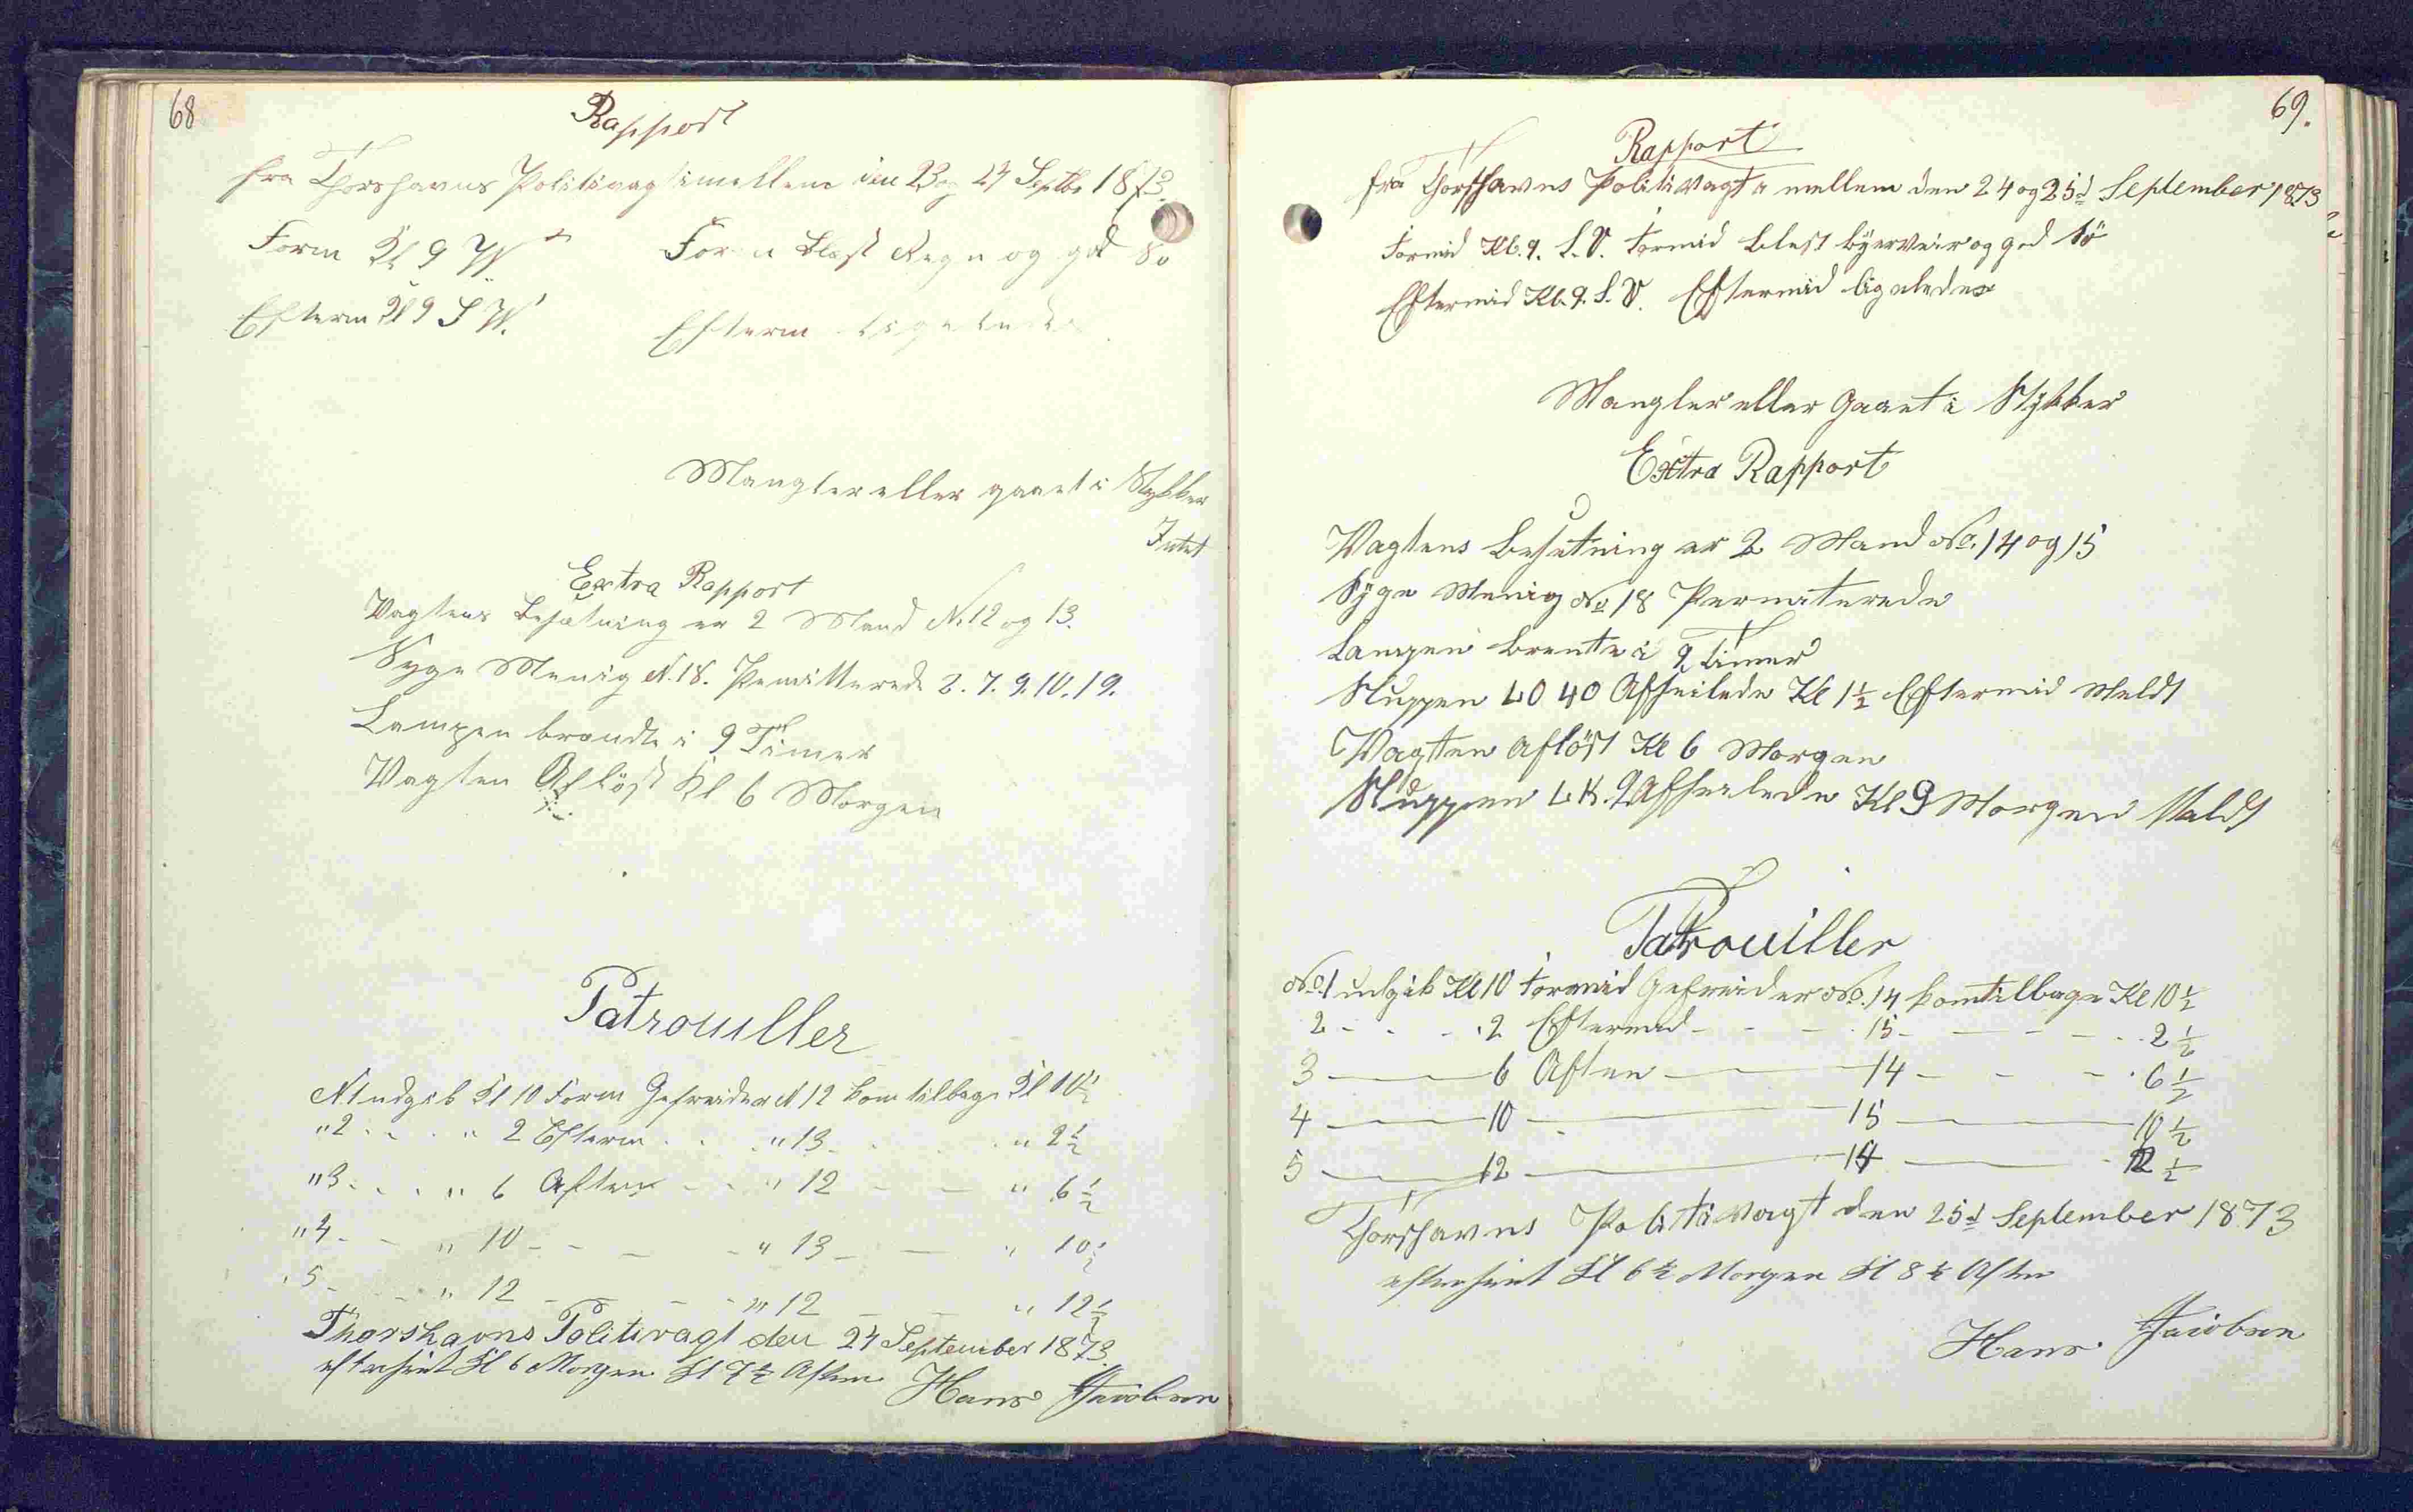 68
Rapport
fra Thorshavns Politivagt imellem den 23 og 24 Septbr 1873.
Form Kl 9 W Form Blæst Regn og god Sö
Efterm Kl 9 S W. Efterm ligeledes
Mangler eller gaaet i Stykker
Intet
Extra Rapport
Vagtens Besætning er 2 Mand N. 12 og 13.
Syge Menig N. 18. Pemitterede 2. 7. 9. 10. 19.
Lampen brændte i 9 Timer
Vagten Aflöst Kl 6 Morgen
Patrouiller
N 1 udgik Kl 10 Form Gefreider N 12 kom tilbage Kl 10½
" 2 " 2 Efterm " 13 " 2½
" 3 " 6 Aften " 12 " 6½
" 4 " 10 " 13 " 10½
" 5 " 12 " 12 " 12½
Thorshavns Politivagt den 24 September 1873.
efterseet Kl 6 Morgen Kl 7½ Aften Hans Jacobsen
69.
Rapport
fra Thorshavns Politivagt a mellem den 24 og 25d September 1873
Formid Kl. 9. S. V. Formid Blest Byerveir og god Sö
Eftermid Kl. 9. S. V. Eftermid ligeledes
Mangler eller Gaaet i Stykker
Extra Rapport
Vagtens Besetning er 2 Mand No. 14 og 15
Syge Menig No 18 Permiterede
Lampen brente i 9 Timer
Sluppen LO 40 Afseilede Kl 1½ Eftermid Meldt
Vagten aflöst Kl 6 Morgen
Sluppen LK. 9 Afseilede Kl 9 Morgen Meldt
Patrouiller
No. 1 udgik Kl 10 Formid Gefreider No. 14 kom tilbage Kl 10½
2 2 Eftermid 15 2½
3 6 Aften 14 6½
4 10 15 10½
5 12 14 12½
Thorshavns Politivagt den 25d September 1873
efterseet Kl 6½ Morgen Kl 8½ Aften
Hans Jacobsen